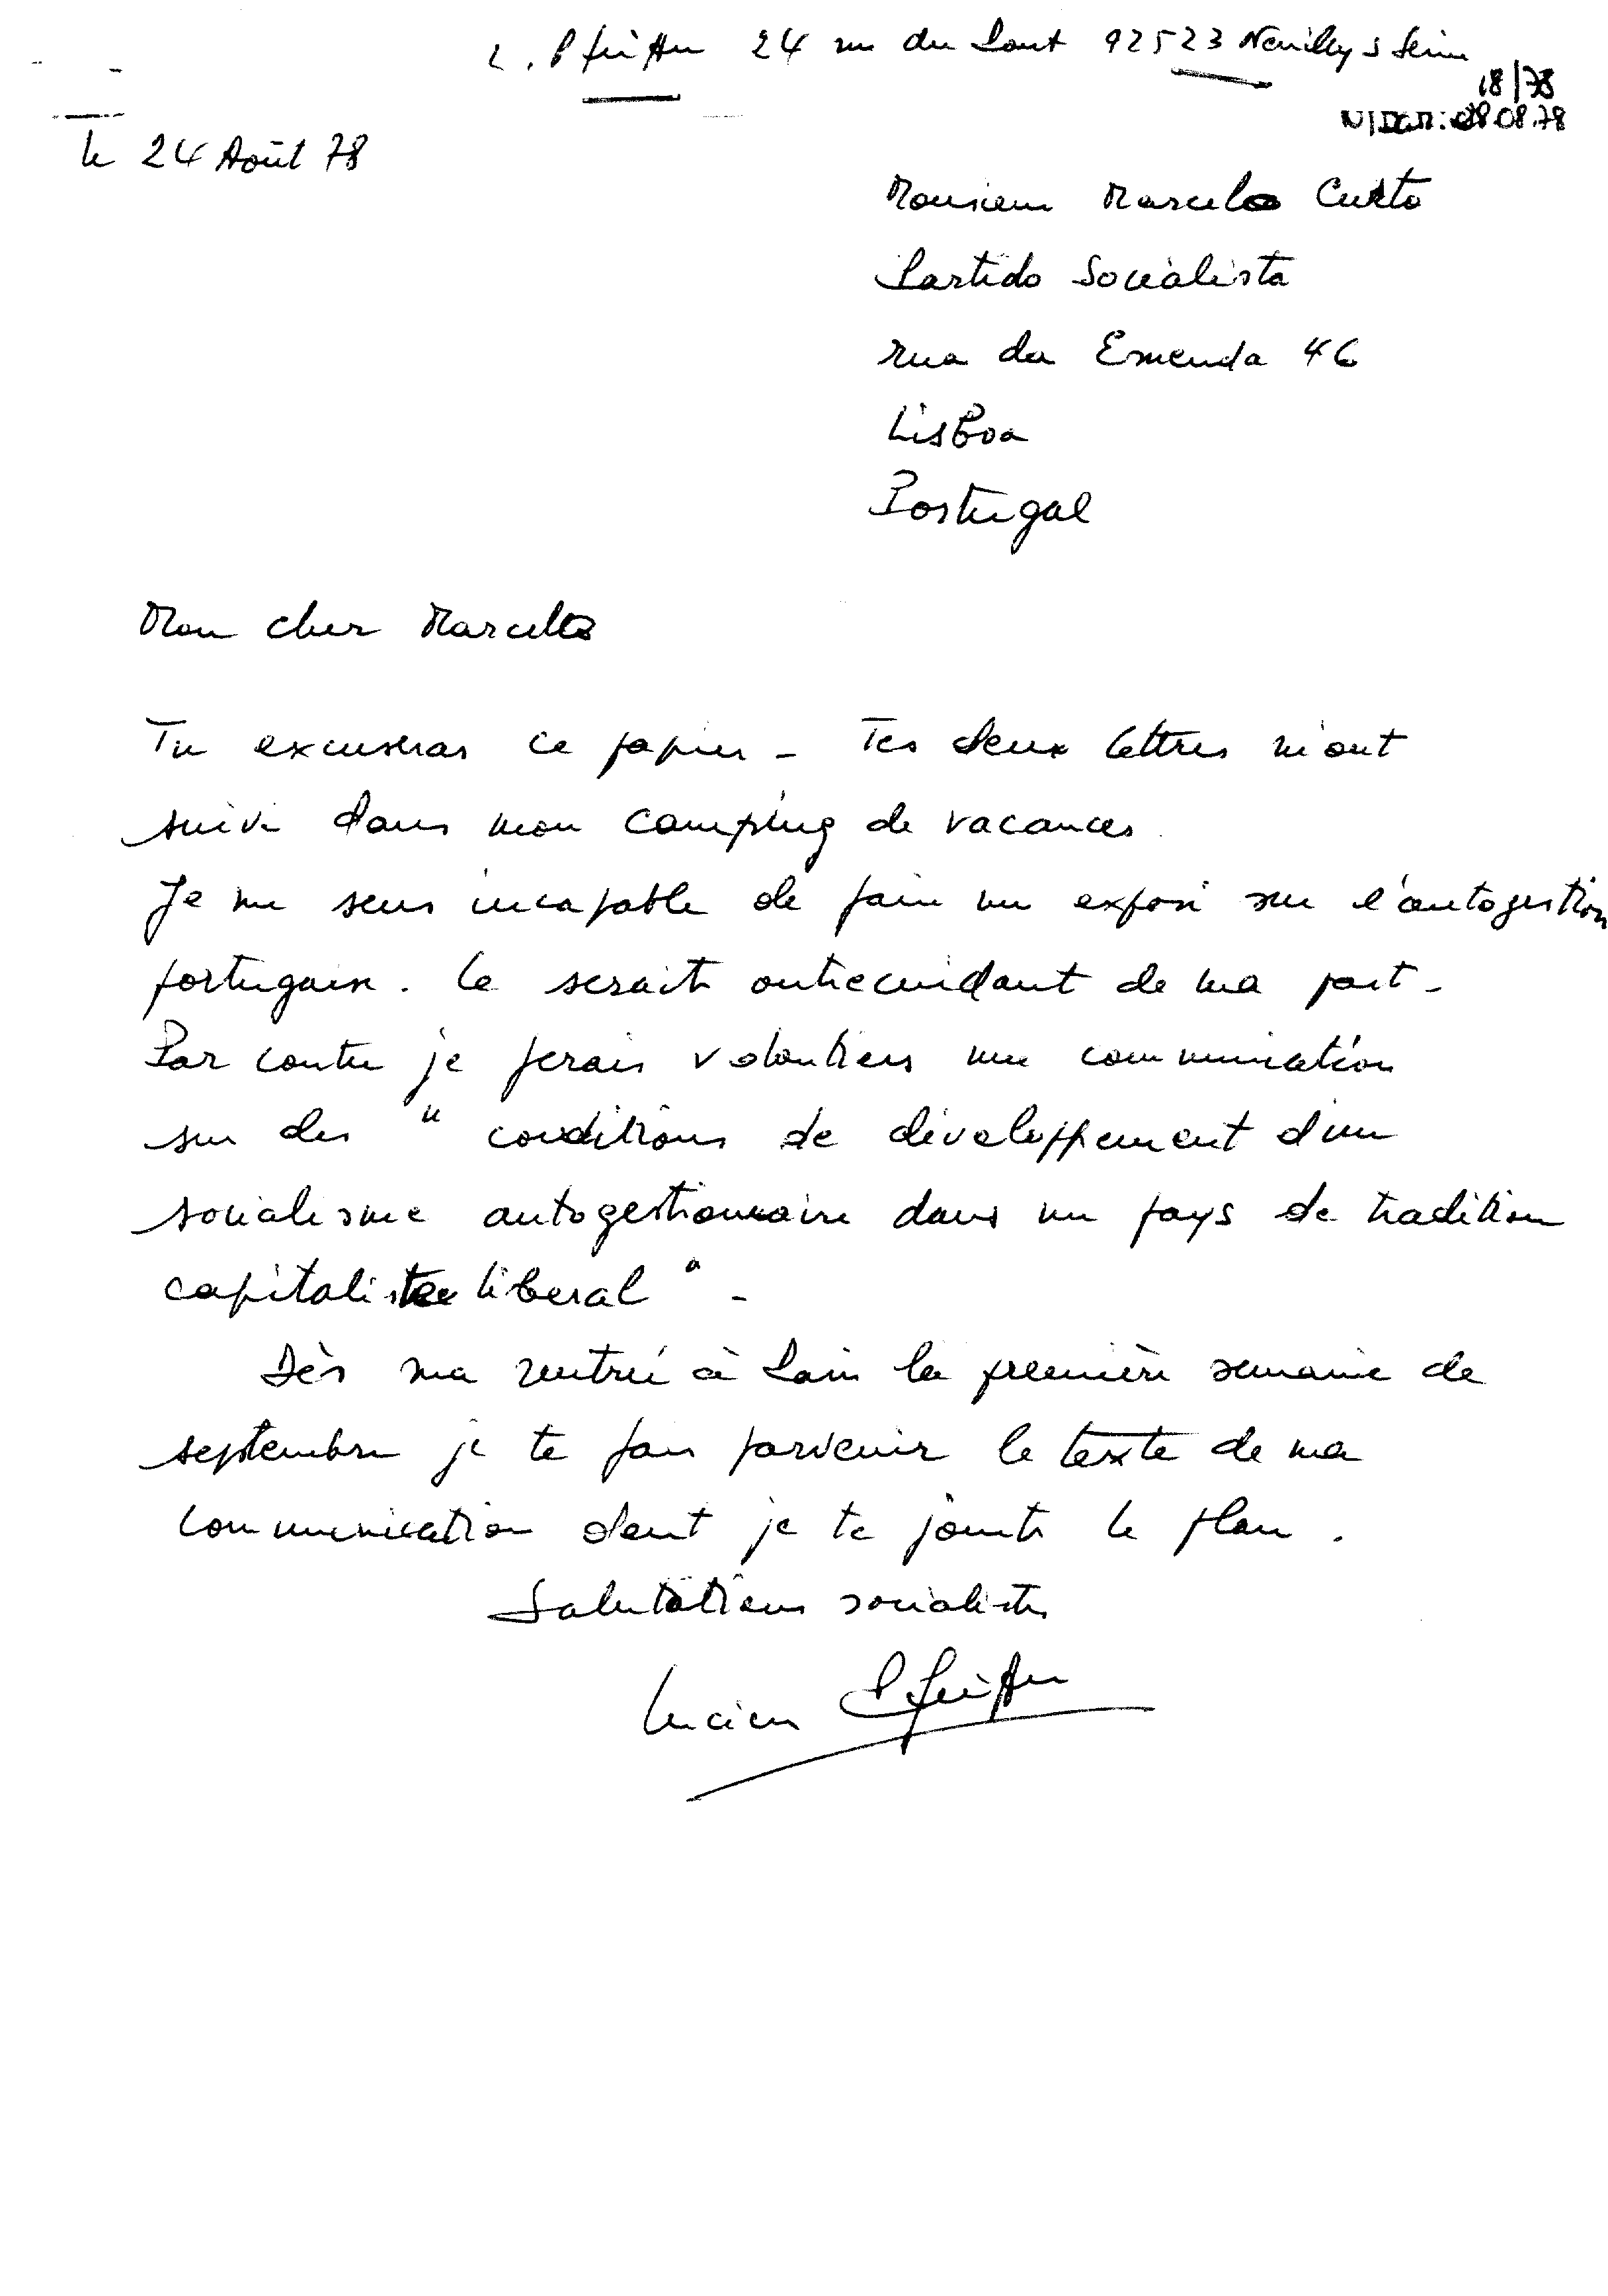 L. Pfeiffer 24 rue du Pont 92523 Neuilly s Seine
18/78
08.08.78
le 24 Août 78
Monsieur Marcelo Curto
Partido Socialista
rua da Emenda 46
Lisboa
Portugal
Mon cher Marcelo
Tu excuseras ce papier - Tes deux lettres m'ont
suivi dans mon camping de vacances.
Je me sens incapable de faire un exposé sur l'autogestion
portugaise. Ce serait outrecuidant de ma part -
Par contre je ferais volontiers une communication
sur des " conditions de développement d'un
socialisme autogestionnaire dans un pays de tradition
capitaliste liberal " -
Dès ma rentrée à Paris la première semaine de
septembre je te fais parvenir le texte de ma
communication dont je te joints le plan.
Salutations socialistes
Lucien Pfeiffer